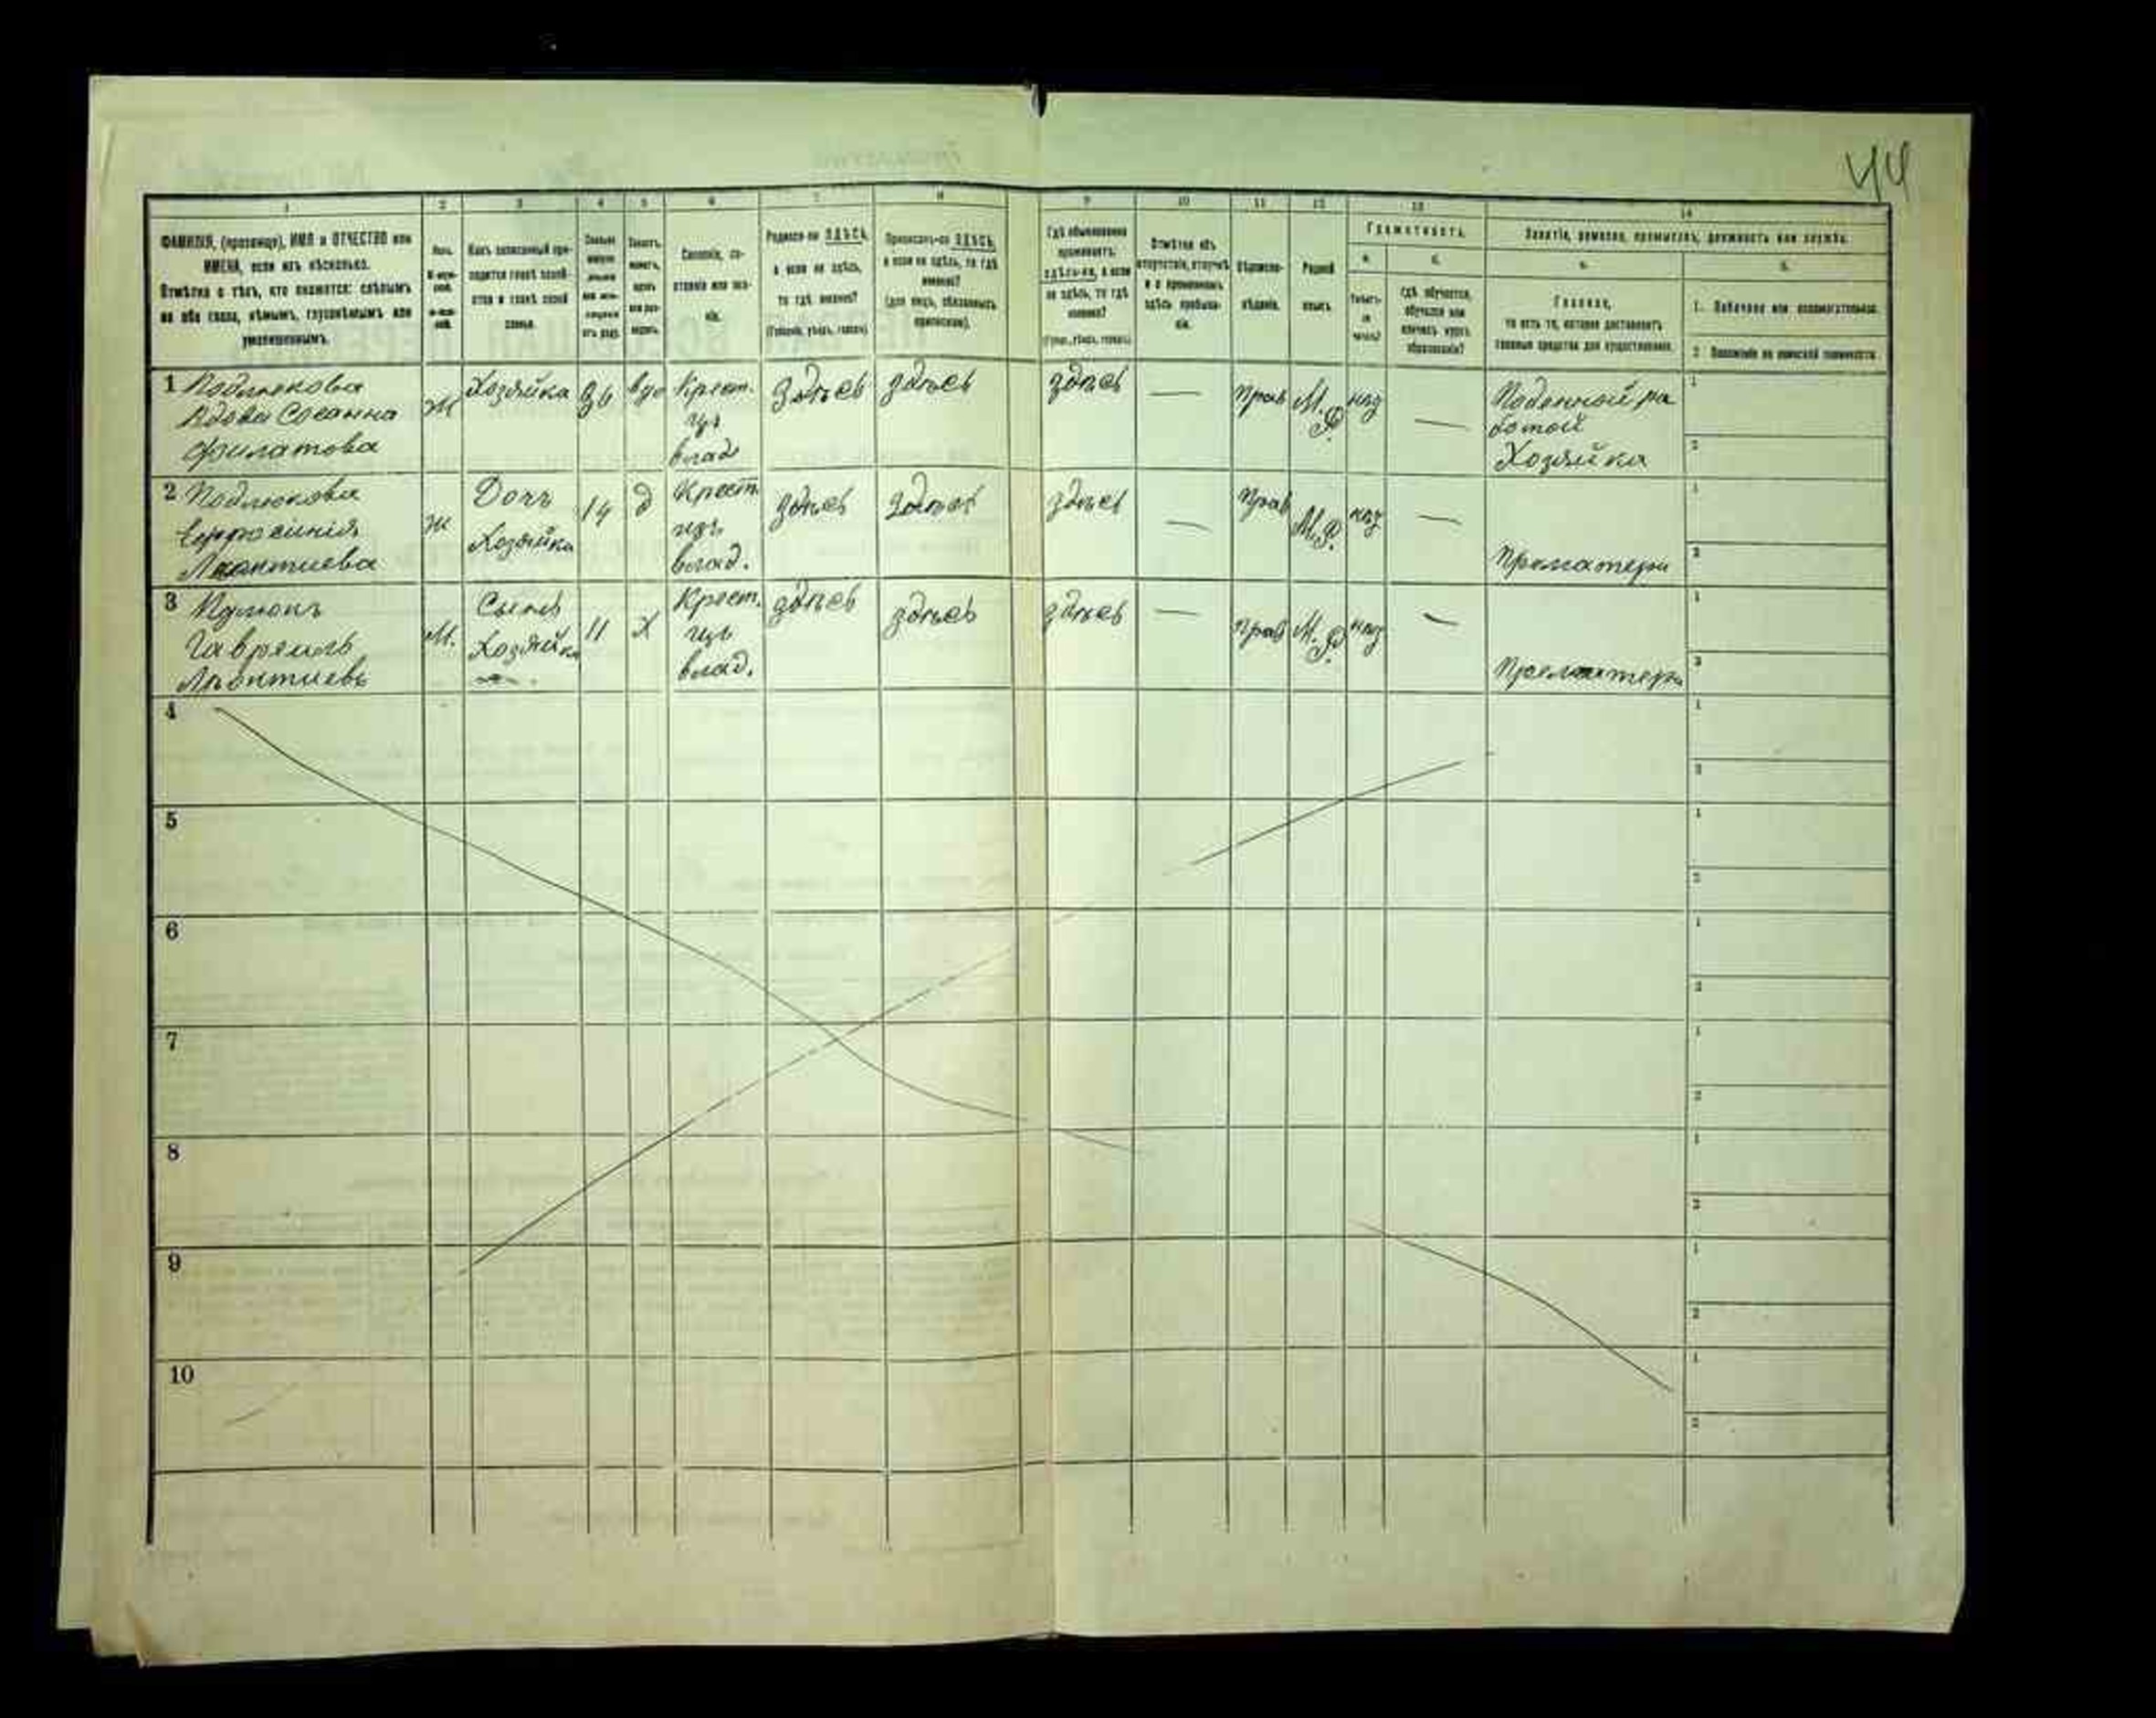 44
1 2 3 4 5 6 7 8 9 10 11 12 13 14
ФАМИЛІЯ, (прозвище), ИМЯ и ОТЧЕСТВО или
ИМЕНА, если ихъ нѣсколько.
Отмѣтка о тѣхъ, кто окажется: слѣпымъ
на оба глаза, нѣмымъ, глухонѣмымъ или
умалишеннымъ.
Полъ.
Какъ записанный при-
ходится главѣ хозяй-
ства и главѣ своей
семьи.
Сословіе, со-
стояніе или зва-
ніе.
Родился-ли ЗДѢСЬ,
а если не здѣсь,
то гдѣ именно?
(Губернія, уѣздъ, городъ)
Приписанъ-ли ЗДѢСЬ,
а если не здѣсь, то гдѣ
именно?
(для лицъ, обязанныхъ
припискою).
Гдѣ обыкновенно
проживаетъ:
здѣсь-ли, а если
не здѣсь, то гдѣ
именно?
(Губер., уѣздъ, городъ)
Отмѣтка объ
отсутствіи, отлучкѣ
и о временномъ
здѣсь пребыва-
ніи.
Вѣроиспо-
вѣданіе.
Родной
языкъ.
Грамотность.
а.
Умѣетъ-
ли
читать?
б.
гдѣ обучается,
обучался или
кончилъ курсъ
образованія?
Занятіе, ремесло, промыселъ, должность или служба.
а.
Главное,
то есть то, которое доставляетъ
главныя средства для существованія.
б.
1. Побочное или вспомогательное.
2. Положеніе по воинской повинности.
1 Подлюкова
Вдова Сосанна
Филатова
ж
Хозяйка
36
вдо
Крест.
изъ
влад
здѣсь
здѣсь
здѣсь
—
прав
М.
Р.
нѣз
—
Поденной ра
ботой
Хозяйка
1
2
2 Подлюкова
Ефросинія
Леонтиева
ж
Дочъ
Хозяйки
14
д
Крест.
изъ
влад.
здѣсь
здѣсь
здѣсь
—
прав
М.Р.
нѣз
—
При матери
1
2
3
Гавреилъ
Леонтиевъ
М.
Сынъ
Хозяйки
11
Х
Крест.
изъ
влад.
здѣсь
здѣсь
здѣсь
—
прав
М.
Р.
нѣз
—
При матери
1
2
4
1
2
5
1
2
6
1
2
7
1
2
8
1
2
9
1
2
10
1
2